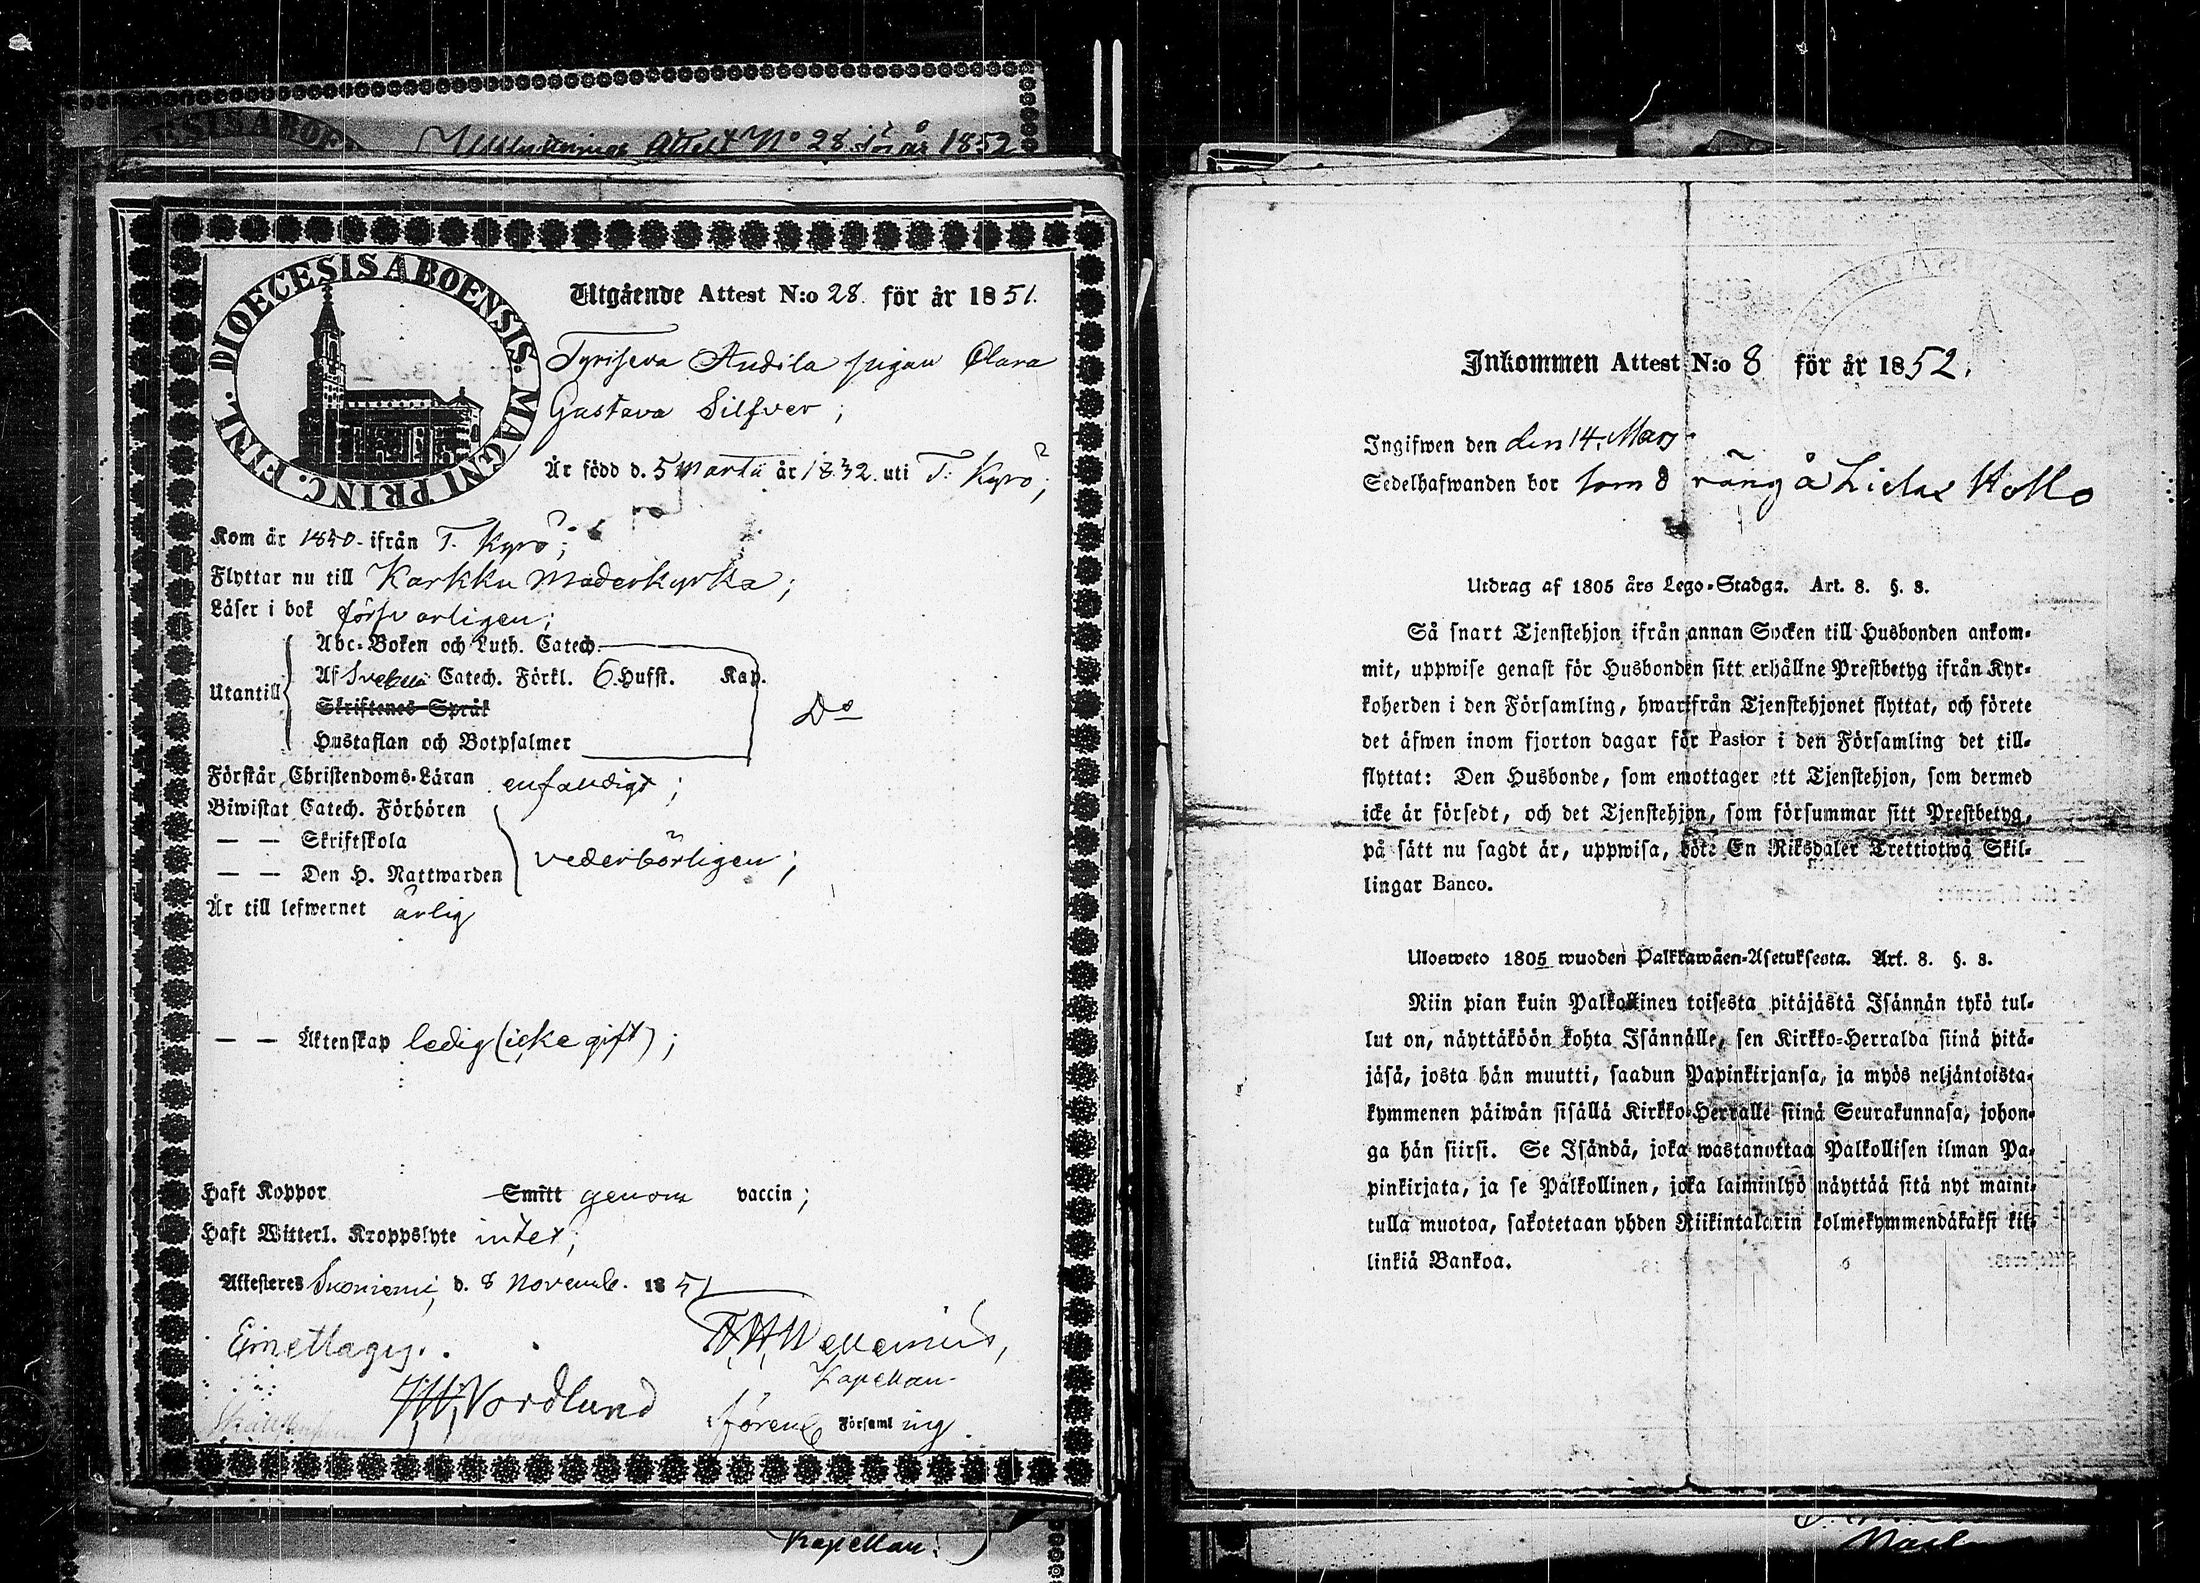 Attest No 28 för år 1852
DIOECESIS ABOENSIS. MAGNI PRINC. FINL.
Utgående Attest N:o 28. för år 1851.
Tyrisevа Andila pigan Clara
Gustava Silfver;
Är född d. 5 Martii år 1832. uti T. Kyrö;
Kom år 1850. ifrån T. Kyrö;
Flyttar nu till Karkku Moderkyrka;
Läser i bok försvarligen;
Abc-Boken och Luth. Catech.
Utantill Af Svebelii Catech. Förkl. 6. Hufst. Kap.
Skriftenes Språk
Do
Hustaflan och Botpsalmer
Förstår Christendoms-Läran enfaldigt;
Biwistat Catech. Förhören
— — Skriftskola
vederbörligen;
— — Den H. Nattwarden
Är till lefwernet ärlig
— — Äktenskap ledig (icke gift);
Haft Koppor Smitt genom vaccin;
Haft Witterl. Kroppslyte intet;
Attesteres Suoniemi, d. 8 Novemb. 1851
Kapellan.
J.W. Nordlund
förene Församl ing.
Kapellan.
Inkommen Attest N:o 8 för år 1852.
Ingifwen den den 14. Mars
Sedelhafwanden bor som
Utdrag af 1805 års Lego-Stadga. Art. 8. §. 8.
Så snart Tjenstehjon ifrån annan Socken till Husbonden ankom-
mit, uppwise genast för Husbonden sitt erhållne Prestbetyg ifrån Kyr-
koherden i den Församling, hwarifrån Tjenstehjonet flyttat, och förete
det äfwen inom fjorton dagar för Pastor i den Församling det till-
flyttat: Den Husbonde, som emottager ett Tjenstehjon, som dermed
icke är försedt, och det Tjenstehjon, som försummar sitt Prestbetyg,
på sätt nu sagdt är, uppwisa, böte En Riksdaler Trettiotwå Skil-
lingar Banco.
Ulosweto 1805 wuoden Palkkawäen-Asetuksesta. Art. 8. §. 8.
Niin pian kuin Palkollinen toisesta pitäjästä Isännän tykö tul-
lut on, näyttäköön kohta Isännälle, sen Kirkko-Herralda siinä pitä-
jäsä, josta hän muutti, saadun Papinkirjansa, ja myös neljäntoista-
kymmenen päiwän sisällä Kirkko-Herralle siinä Seurakunnasa, johon-
ga hän siirsi. Se Isändä, joka wastanottaa Palkollisen ilman Pa-
pinkirjata, ja se Palkollinen, joka laiminlyö näyttää sitä nyt maini-
tulla muotoa, sakotetaan yhden Riikintalarin kolmekymmendäkaksi kil-
linkiä Bankoa.